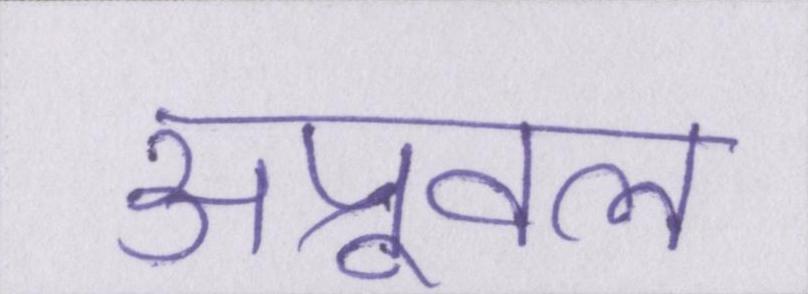 अप्रूवल